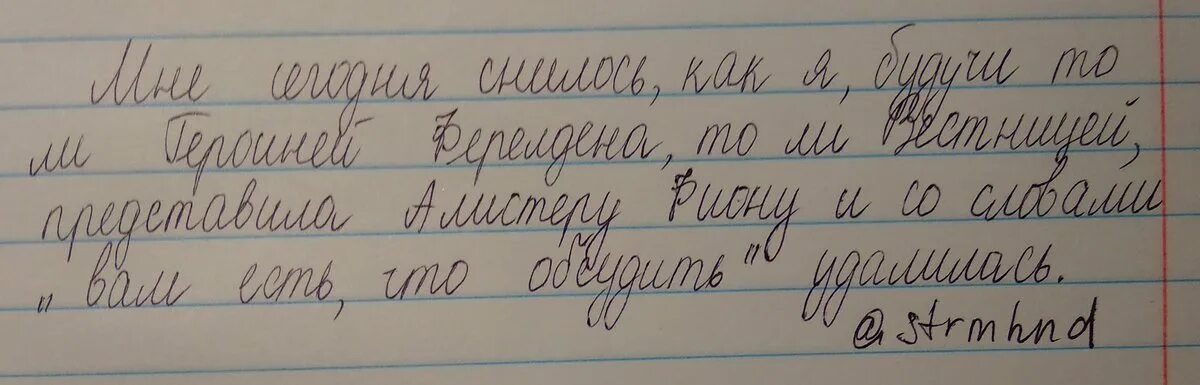 Мне сегодня снилось, как я, будучи то
ли Героиней Ферелдена, то ли Вестницей,
представила Алистеру Фиону и со словами
„вам есть, что обсудить" удалилась.
@strmhnd